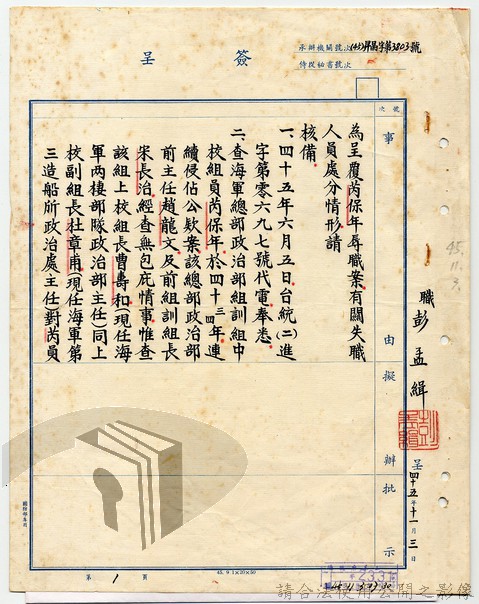 簽呈
承辦機關號次(45)昇昌字第3803號
侍從秘書號次
號次
事由
擬辦
批示
為呈覆芮保年辱職案有關失職
人員處分情形請
核備
一、四十五年六月五日台統(二)進
字第零六九七號代電奉悉
二、查海軍總部政治部組訓組中
校組員芮保年於四十三年連
續侵佔公款案該總部政治部
前主任趙龍文及前組訓組長
宋長治經查無包庇情事惟查
該組上校組長曹壽和(現任海
軍兩棲部隊政治部主任)同上
校副組長杜章甫(現任海軍第
三造船所政治處主任)對芮員
職彭孟緝
呈四十五年十一月三日
45.11.3.
第1頁
45.9 1×20×50
請合法使用公開之影像